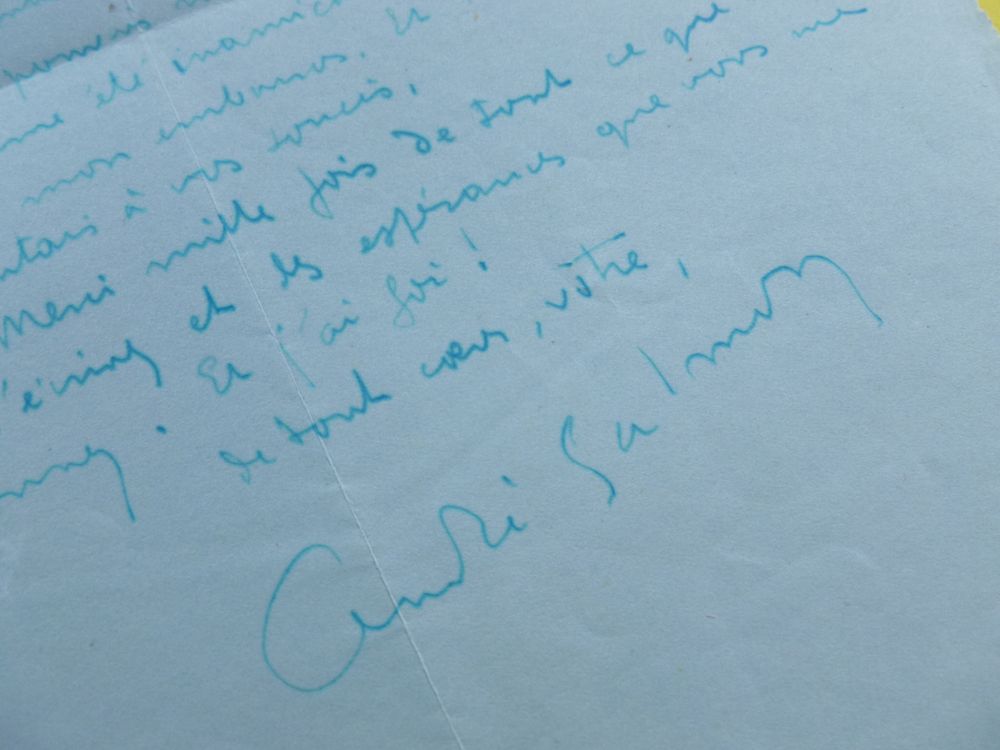 été inamic
mon embarras. Et
à vos soucis.
Merci mille fois de tout ce que
et les espérances que vous me
Et j'ai foi !
de tout cœur, vôtre,
André Salmon